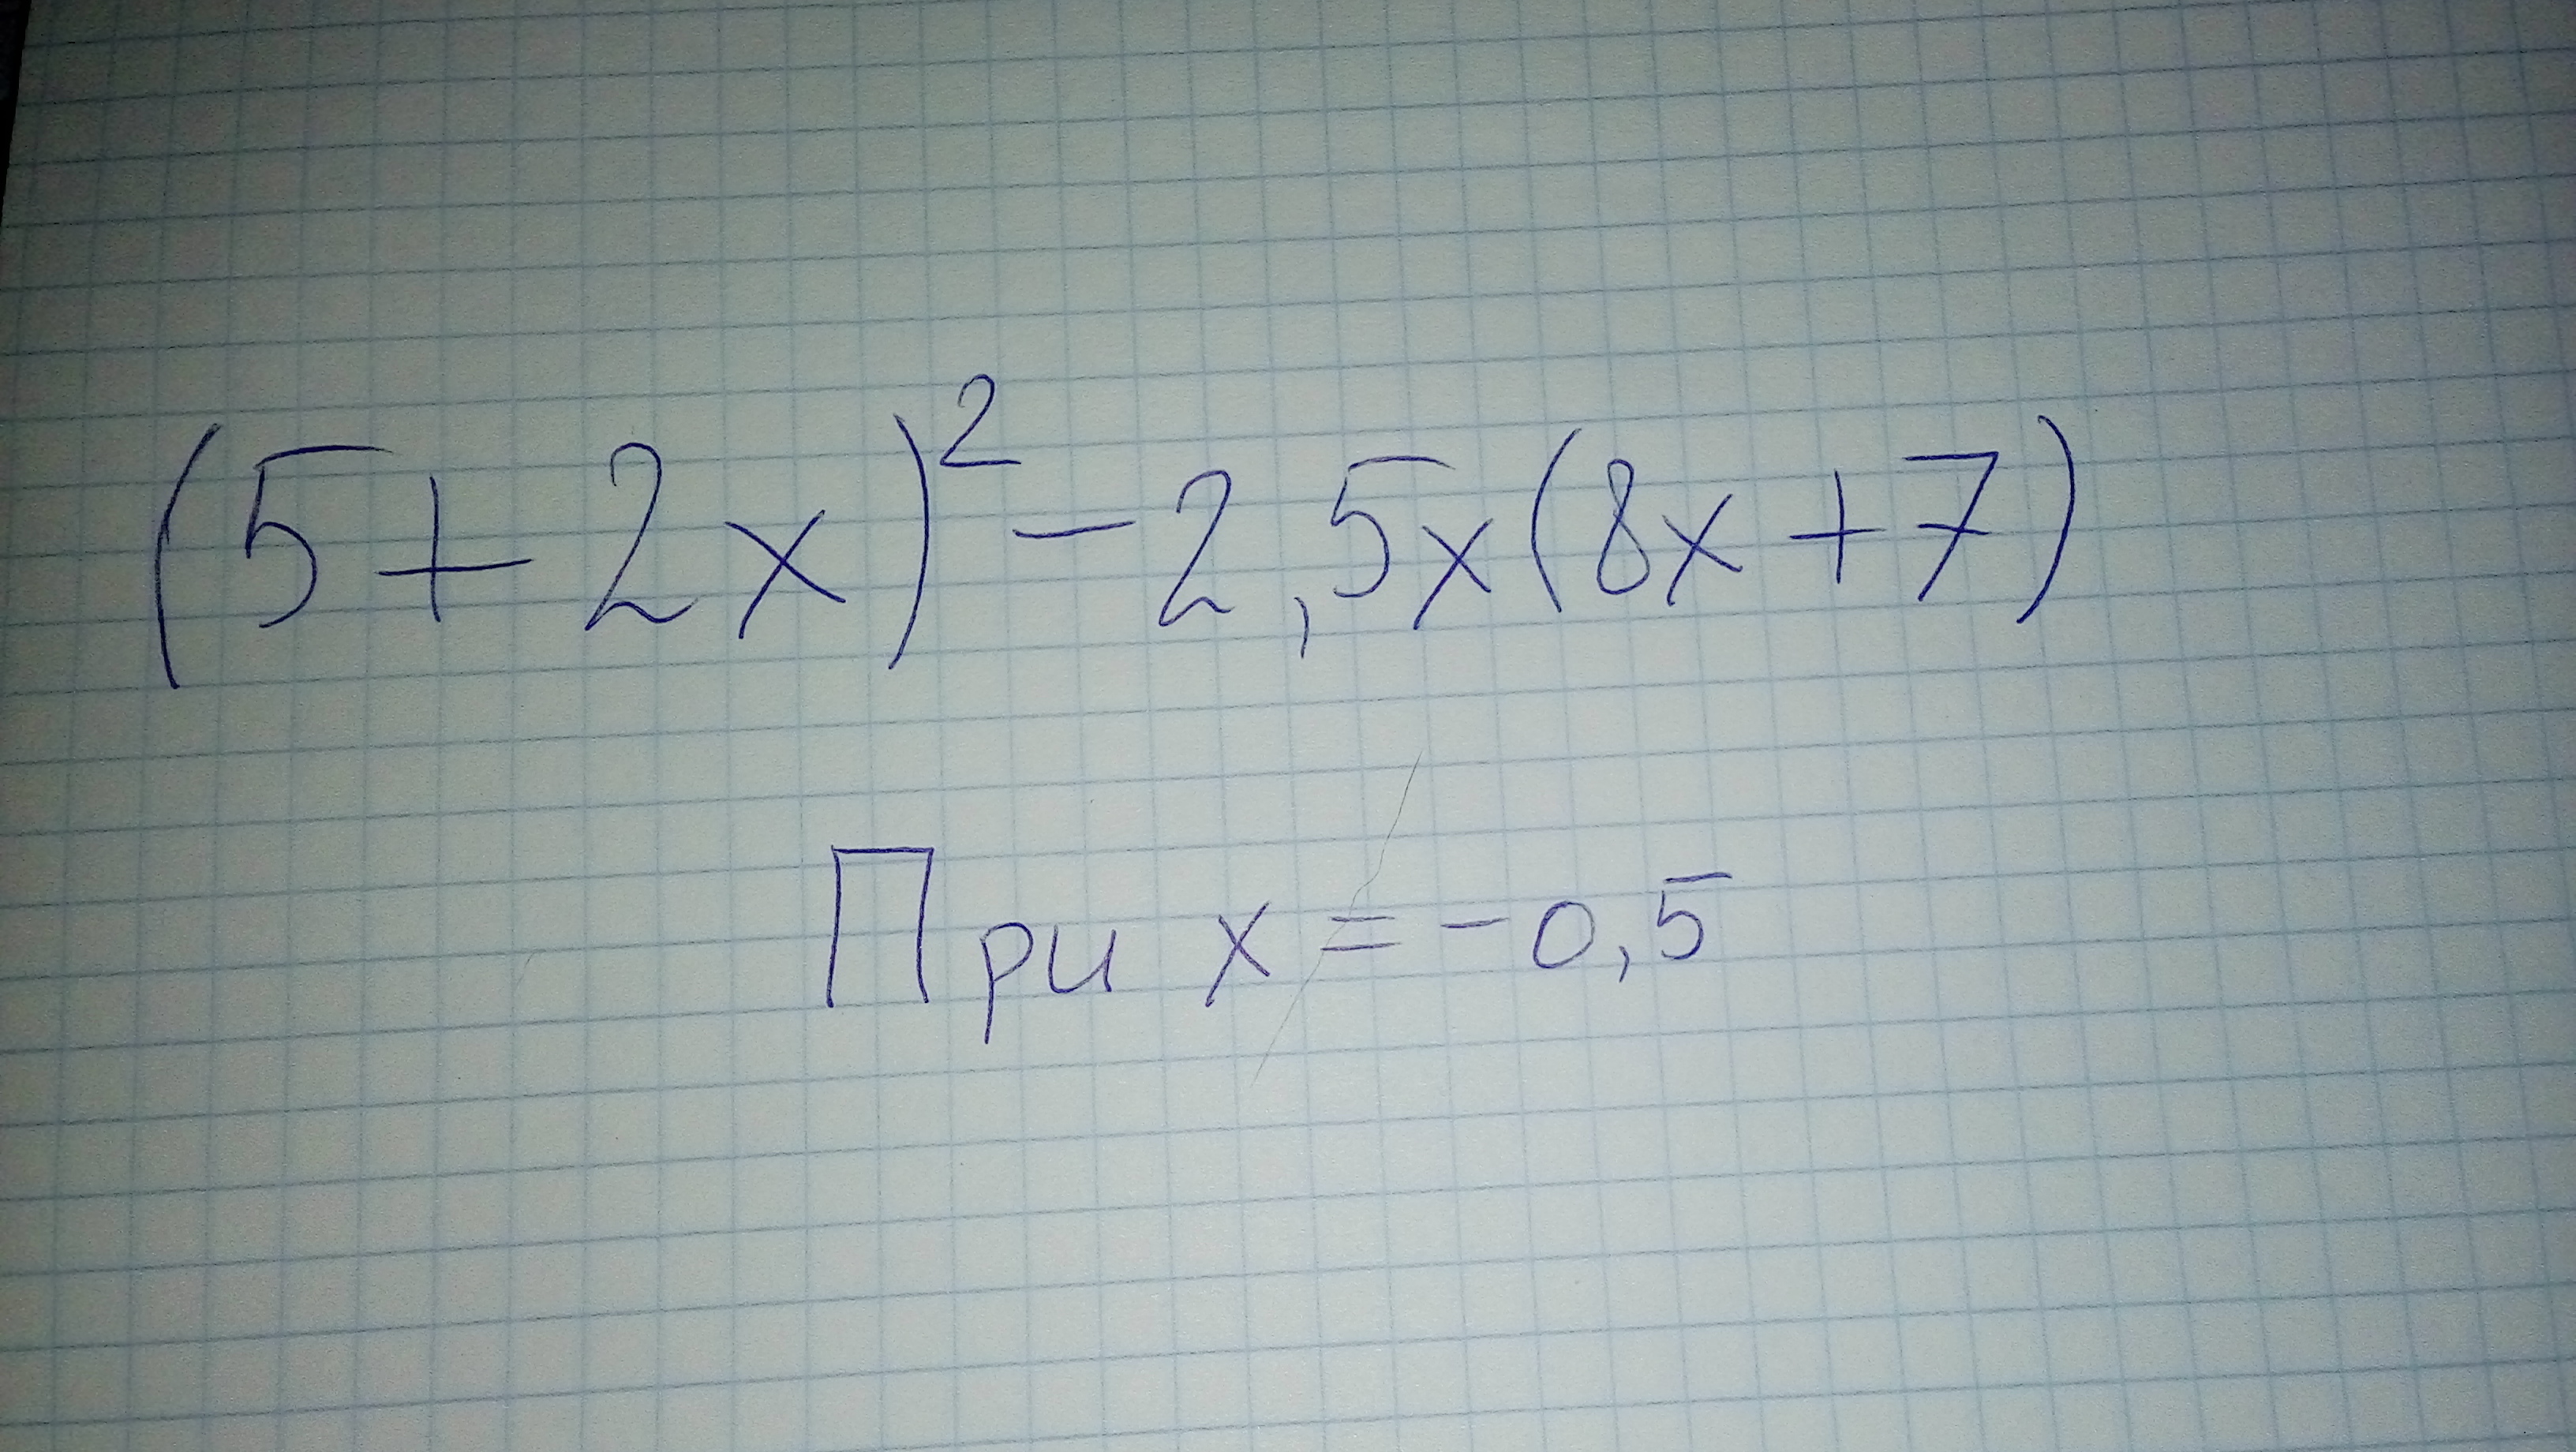 (5+2x)² - 2,5x(8x+7)
При x = -0,5